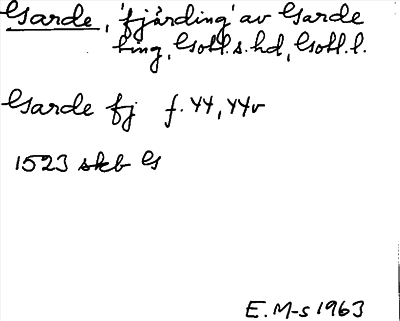 Garde, 'fjärding' av Garde
ting, Gotl.s.hd, Gotl.l.
Garde fj f. 44, 44v
1523 skb G
E. M-s 1963